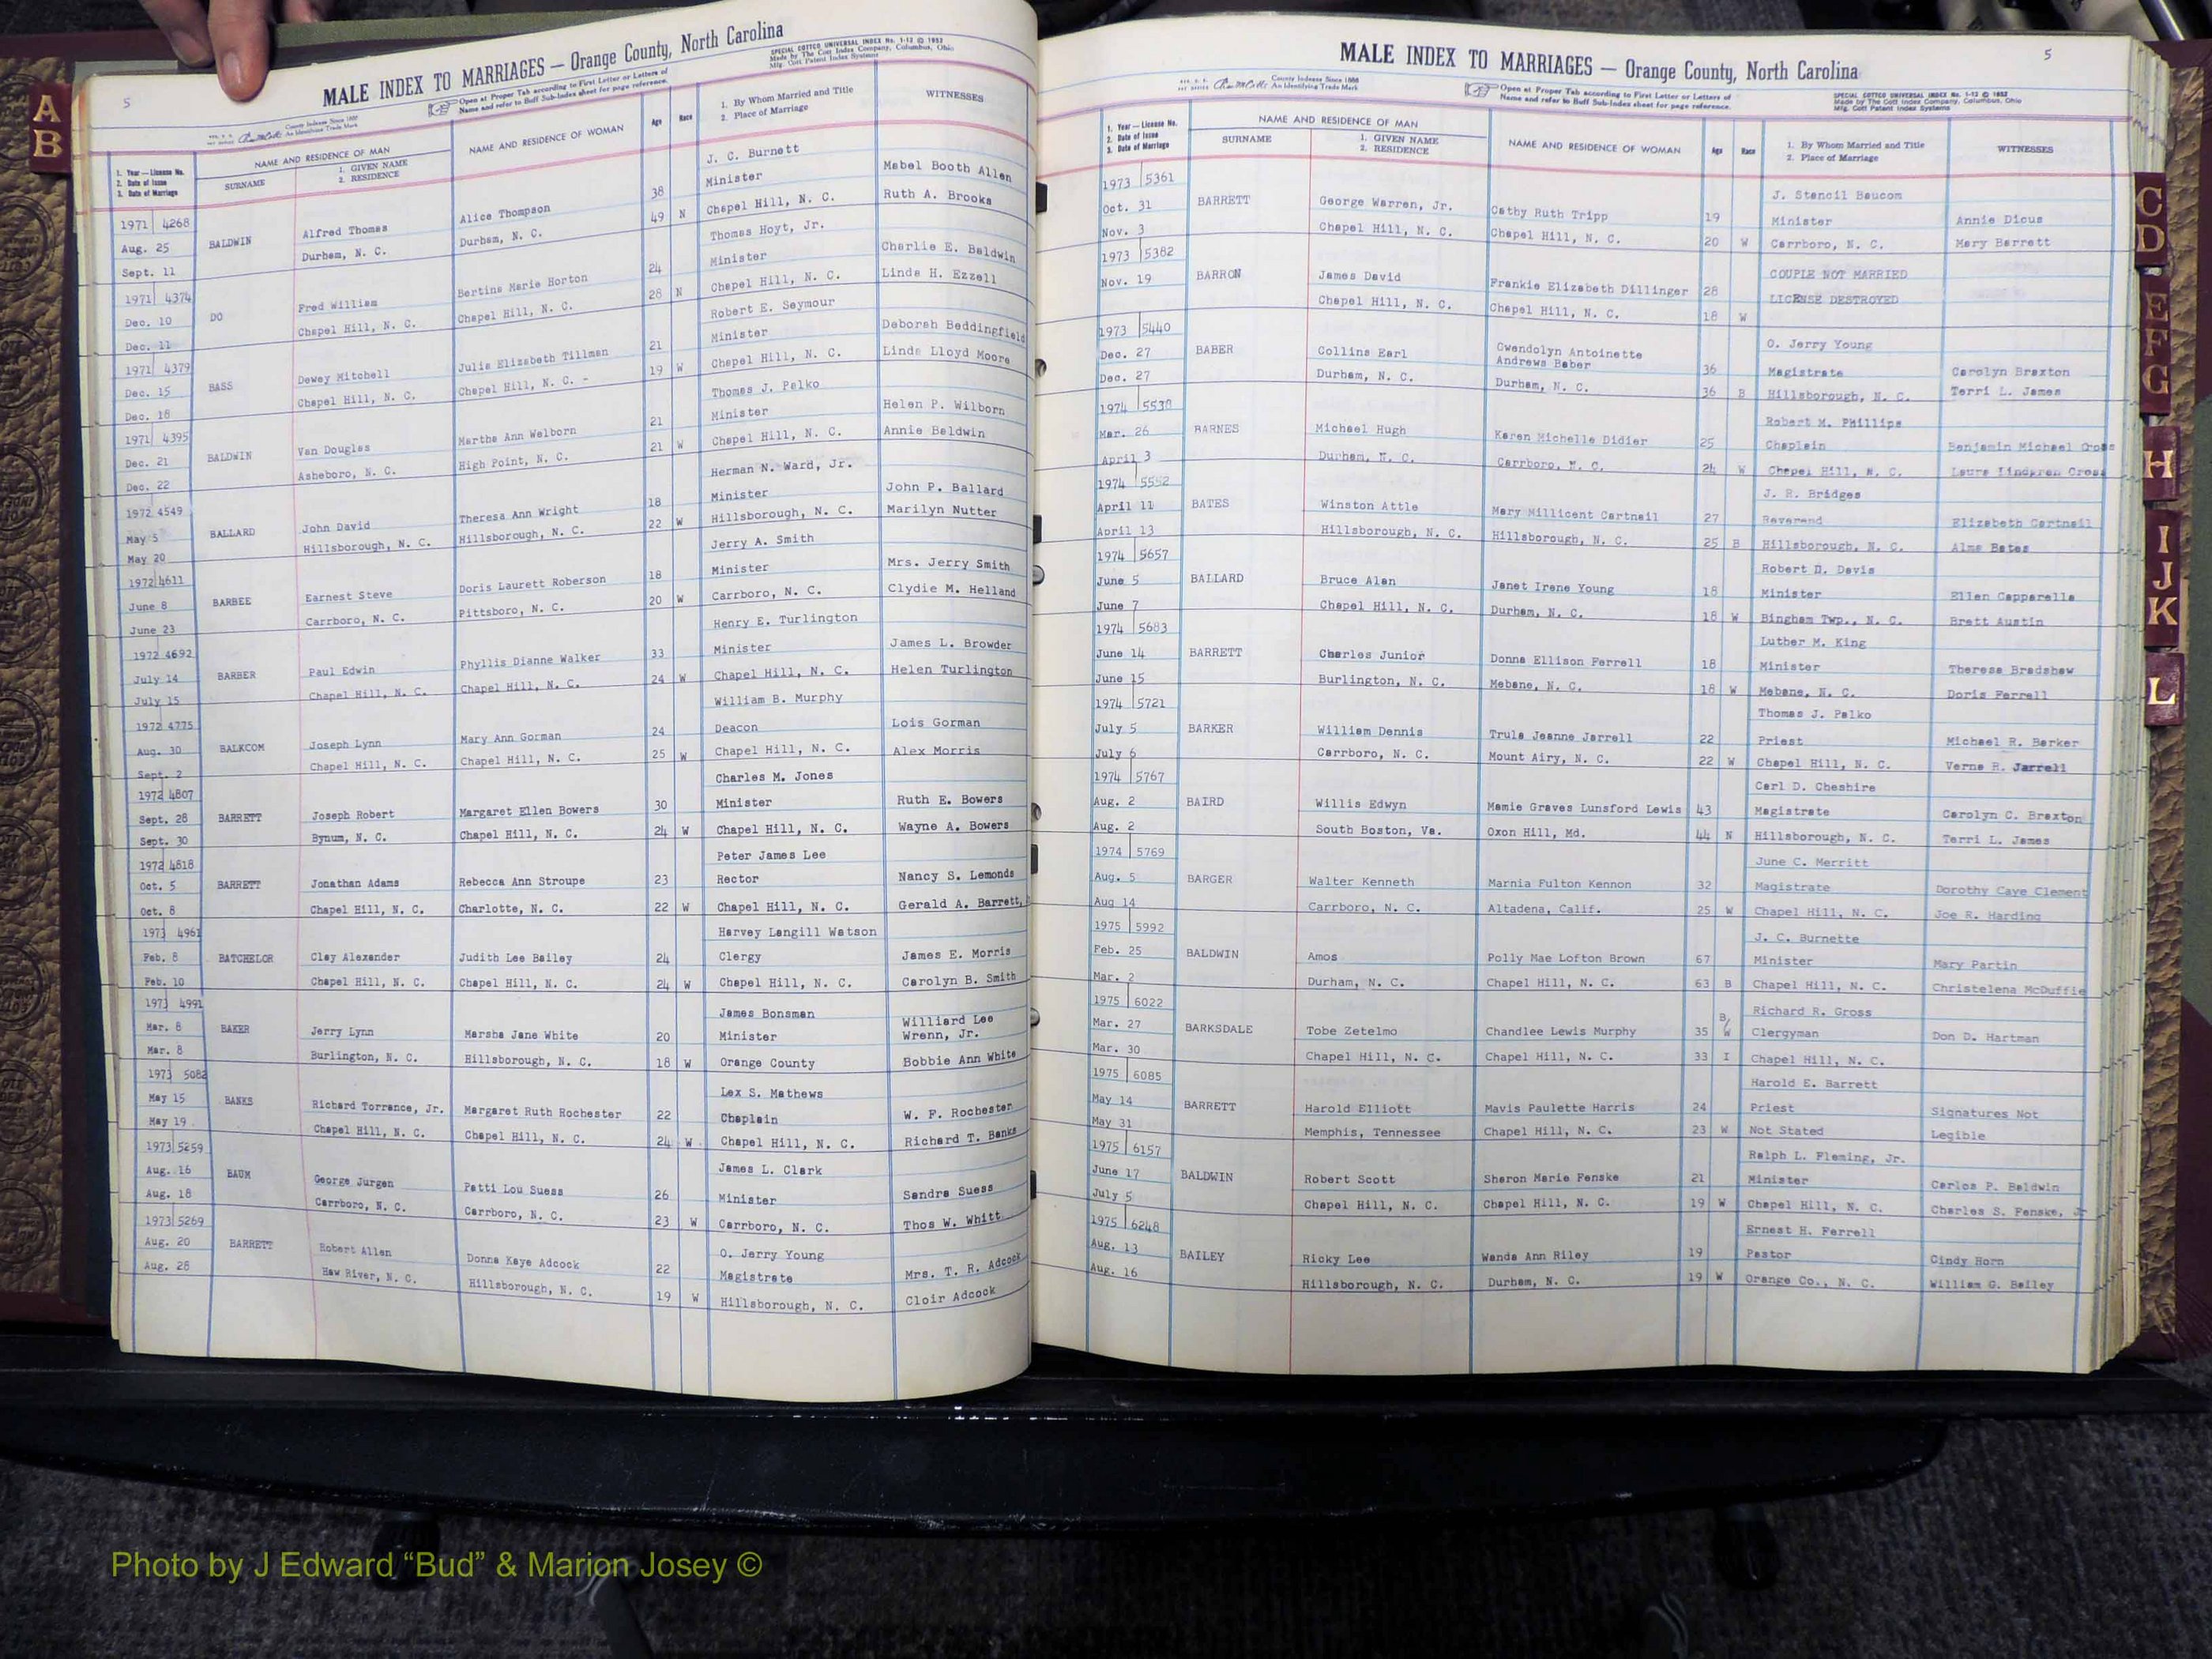 5
MALE INDEX TO MARRIAGES — Orange County, North Carolina
SPECIAL COTTCO UNIVERSAL INDEX No. 1-12 © 1953
Made by The Cott Index Company, Columbus, Ohio
Mfg. Cott Patent Index Systems
Open at Proper Tab according to First Letter or Letters of
Name and refer to Buff Sub-Index sheet for page reference.
County Indexes Since 1888
An Identifying Trade Mark
1. Year — License No.
2. Date of Issue
3. Date of Marriage
NAME AND RESIDENCE OF MAN
SURNAME
1. GIVEN NAME
2. RESIDENCE
NAME AND RESIDENCE OF WOMAN
Age
Race
1. By Whom Married and Title
2. Place of Marriage
WITNESSES
J. C. Burnett
1971 4268 Alice Thompson 38 Minister Mabel Booth Allen
Aug. 25 BALDWIN Alfred Thomas Durham, N. C. 49 N Chapel Hill, N. C. Ruth A. Brooks
Sept. 11 Durham, N. C.
Thomas Hoyt, Jr.
1971 4374 Fred William Bertina Marie Horton 24 Minister Charlie E. Baldwin
Dec. 10 DO Chapel Hill, N. C. Chapel Hill, N. C. 28 N Chapel Hill, N. C. Linda H. Ezzell
Dec. 11
Robert E. Seymour
1971 4379 Dewey Mitchell Julie Elizabeth Tillman 21 Minister Deborah Beddingfield
Dec. 15 BASS Chapel Hill, N. C. Chapel Hill, N. C. - 19 W Chapel Hill, N. C. Linda Lloyd Moore
Dec. 18
Thomas J. Palko
1971 4395 Van Douglas Martha Ann Welborn 21 Minister Helen P. Wilborn
Dec. 21 BALDWIN Asheboro, N. C. High Point, N. C. 21 W Chapel Hill, N. C. Annie Baldwin
Dec. 22
Herman N. Ward, Jr.
1972 4549 John David Theresa Ann Wright 18 Minister John P. Ballard
May 5 BALLARD Hillsborough, N. C. Hillsborough, N. C. 22 W Hillsborough, N. C. Marilyn Nutter
May 20
Jerry A. Smith
1972 4611 Earnest Steve Doris Laurett Roberson 18 Minister Mrs. Jerry Smith
June 8 BARBEE Carrboro, N. C. Pittsboro, N. C. 20 W Carrboro, N. C. Clydie M. Helland
June 23
Henry E. Turlington
1972 4692 Paul Edwin Phyllis Dianne Walker 33 Minister James L. Browder
July 14 BARBER Chapel Hill, N. C. Chapel Hill, N. C. 24 W Chapel Hill, N. C. Helen Turlington
July 15
William B. Murphy
1972 4775 Joseph Lynn Mary Ann Gorman 24 Deacon Lois Gorman
Aug. 30 BALKCOM Chapel Hill, N. C. Chapel Hill, N. C. 25 W Chapel Hill, N. C. Alex Morris
Sept. 2
Charles M. Jones
1972 4807 Joseph Robert Margaret Ellen Bowers 30 Minister Ruth E. Bowers
Sept. 28 BARRETT Bynum, N. C. Chapel Hill, N. C. 24 W Chapel Hill, N. C. Wayne A. Bowers
Sept. 30
Peter James Lee
1972 4818 Jonathan Adams Rebecca Ann Stroupe 23 Rector Nancy S. Lemonds
Oct. 5 BARRETT Chapel Hill, N. C. Charlotte, N. C. 22 W Chapel Hill, N. C. Gerald A. Barrett,
Oct. 8
Harvey Langill Watson
1973 4961 Clay Alexander Judith Lee Bailey 24 Clergy James E. Morris
Feb. 8 BATCHELOR Chapel Hill, N. C. Chapel Hill, N. C. 24 W Chapel Hill, N. C. Carolyn B. Smith
Feb. 10
James Bonsman
1973 4991 Jerry Lynn Marsha Jane White 20 Minister Williard Lee Wrenn, Jr.
Mar. 8 BAKER Burlington, N. C. Hillsborough, N. C. 18 W Orange County Bobbie Ann White
Mar. 8
Lex S. Mathews
1973 5082 Richard Torrance, Jr. Margaret Ruth Rochester 22 Chaplain W. F. Rochester
May 15 BANKS Chapel Hill, N. C. Chapel Hill, N. C. 24 W Chapel Hill, N. C. Richard T. Banks
May 19
James L. Clark
1973 5259 George Jurgen Patti Lou Suess 26 Minister Sandra Suess
Aug. 16 BAUM Carrboro, N. C. Carrboro, N. C. 23 W Carrboro, N. C. Thos W. Whitt
Aug. 18
O. Jerry Young
1973 5269 Robert Allen Donna Kaye Adcock 22 Magistrate Mrs. T. R. Adcock
Aug. 20 BARRETT Haw River, N. C. Hillsborough, N. C. 19 W Hillsborough, N. C. Cloir Adcock
Aug. 28
5
MALE INDEX TO MARRIAGES — Orange County, North Carolina
County Indexes Since 1888
An Identifying Trade Mark
Open at Proper Tab according to First Letter or Letters of
Name and refer to Buff Sub-Index sheet for page reference.
SPECIAL COTTCO UNIVERSAL INDEX No. 1-12 © 1953
Made by The Cott Index Company, Columbus, Ohio
Mfg. Cott Patent Index Systems
1. Year — License No.
2. Date of Issue
3. Date of Marriage
NAME AND RESIDENCE OF MAN
SURNAME
1. GIVEN NAME
2. RESIDENCE
NAME AND RESIDENCE OF WOMAN
Age
Race
1. By Whom Married and Title
2. Place of Marriage
WITNESSES
1973 5361 J. Stencil Beucom
Oct. 31 BARRETT George Warren, Jr. Cathy Ruth Tripp 19 Minister Annie Dicus
Nov. 3 Chapel Hill, N. C. Chapel Hill, N. C. 20 W Carrboro, N. C. Mary Barrett
1973 5382 COUPLE NOT MARRIED
Nov. 19 BARRON James David Frankie Elizabeth Dillinger 28 LICENSE DESTROYED
Chapel Hill, N. C. Chapel Hill, N. C. 18 W
1973 5440 O. Jerry Young
Dec. 27 BABER Collins Earl Gwendolyn Antoinette Andrews Baber 36 Magistrate Carolyn Braxton
Dec. 27 Durham, N. C. Durham, N. C. 36 B Hillsborough, N. C. Terri L. James
1974 5530 Robert M. Phillips
Mar. 26 BARNES Michael Hugh Karen Michelle Didier 25 Chaplain Benjamin Michael Cross
April 3 Durham, N. C. Carrboro, N. C. 24 W Chapel Hill, N. C. Laura Lindgren Cross
1974 5552 J. R. Bridges
April 11 BATES Winston Attle Mary Millicent Cartnail 27 Reverend Elizabeth Cartnail
April 13 Hillsborough, N. C. Hillsborough, N. C. 25 B Hillsborough, N. C. Alma Bates
1974 5657 Robert D. Davis
June 5 BALLARD Bruce Alan Janet Irene Young 18 Minister Ellen Capparella
June 7 Chapel Hill, N. C. Durham, N. C. 18 W Bingham Twp., N. C. Brett Austin
1974 5683 Luther M. King
June 14 BARRETT Charles Junior Donna Ellison Ferrell 18 Minister Theresa Bradshaw
June 15 Burlington, N. C. Mebane, N. C. 18 W Mebane, N. C. Doris Ferrell
1974 5721 Thomas J. Palko
July 5 BARKER William Dennis Trula Jeanne Jarrell 22 Priest Michael R. Barker
July 6 Carrboro, N. C. Mount Airy, N. C. 22 W Chapel Hill, N. C. Verna R. Jarrell
1974 5767 Carl D. Cheshire
Aug. 2 BAIRD Willis Edwyn Mamie Graves Lunsford Lewis 43 Magistrate Carolyn C. Braxton
Aug. 2 South Boston, Va. Oxon Hill, Md. 44 N Hillsborough, N. C. Terri L. James
1974 5769 June C. Merritt
Aug. 5 BARGER Walter Kenneth Marnia Fulton Kennon 32 Magistrate Dorothy Caye Clement
Aug 14 Carrboro, N. C. Altadena, Calif. 25 W Chapel Hill, N. C. Joe R. Harding
1975 5992 J. C. Burnette
Feb. 25 BALDWIN Amos Polly Mae Lofton Brown 67 Minister Mary Partin
Mar. 2 Durham, N. C. Chapel Hill, N. C. 63 B Chapel Hill, N. C. Christelena McDuffie
1975 6022 Richard R. Gross
Mar. 27 BARKSDALE Tobe Zetelmo Chandlee Lewis Murphy 35 B/W Clergyman Don D. Hartman
Mar. 30 Chapel Hill, N. C. Chapel Hill, N. C. 33 I Chapel Hill, N. C.
1975 6085 Harold E. Barrett
May 14 BARRETT Harold Elliott Mavis Paulette Harris 24 Priest Signatures Not
May 31 Memphis, Tennessee Chapel Hill, N. C. 23 W Not Stated Legible
1975 6157 Ralph L. Fleming, Jr.
June 17 BALDWIN Robert Scott Sharon Marie Fenske 21 Minister Carlos P. Baldwin
July 5 Chapel Hill, N. C. Chapel Hill, N. C. 19 W Chapel Hill, N. C. Charles S. Fenske, Jr
1975 6248 Ernest H. Ferrell
Aug. 13 BAILEY Ricky Lee Wanda Ann Riley 19 Pastor Cindy Horn
Aug. 16 Hillsborough, N. C. Durham, N. C. 19 W Orange Co., N. C. William G. Bailey
A
B
C
D
E
F
G
H
I
J
K
L
Photo by J Edward “Bud” & Marion Josey ©